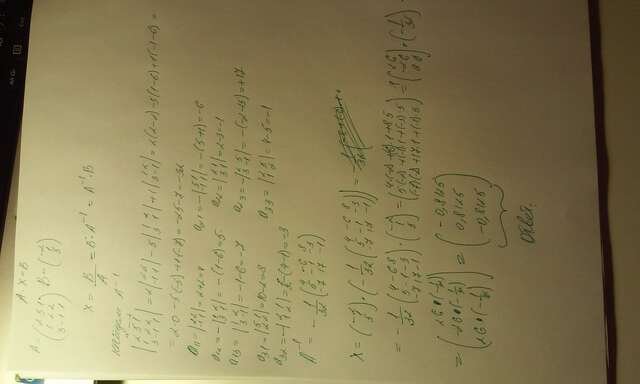 A · X = B
A = (2 5 1 / 1 2 2 / 3 -1 1) B = (-2 / 1 / 5)
X = B/A = B · A⁻¹ = A⁻¹ · B
найдем A⁻¹
|2 5 1 / 1 2 2 / 3 -1 1| = 2 |2 2 / -1 1| - 5 |1 2 / 3 1| + 1 |1 2 / 3 -1| = 2(2-2) - 5(1-6) + 1(-1-6) =
= 2·0 - 5(-5) + 1(-7) = -25-7 = -32
a₁₁ = |2 2 / -1 1| = 2+2=4 a₂₁ = -|5 1 / -1 1| = -(5+1) = -6
a₁₂ = -|1 2 / 3 1| = -(1-6) = 5 a₂₂ = |2 1 / 3 1| = 2-3 = -1
a₁₃ = |1 2 / 3 -1| = -1-6 = -7 a₂₃ = -|2 5 / 3 -1| = -(-2-15) = +17
a₃₁ = |5 1 / 2 2| = 10-2 = 8 a₃₃ = |2 5 / 1 2| = 4-5 = -1
a₃₂ = -|2 1 / 1 2| = -(4-1) = -3
A⁻¹ = -1/32 (4 -6 8 / 5 -1 -3 / -7 17 -1)
X = (-2 / 1 / 5) · (-1/32 (4 -6 8 / 5 -1 -3 / -7 17 -1)) =
= -1/32 (4 -6 8 / 5 -1 -3 / -7 17 -1) · (-2 / 1 / 5) = (4·(-2) + (-6)·1 + 8·5 / 5·(-2) + (-1)·1 + (-3)·5 / (-7)(-2) + 17·1 + (-1)·5) = (26 / -26 / 26) · (-1/32)
= (26 · (-1/32) / -26 · (-1/32) / 26 · (-1/32)) = (-0,8125 / 0,8125 / -0,8125)
Ответ.